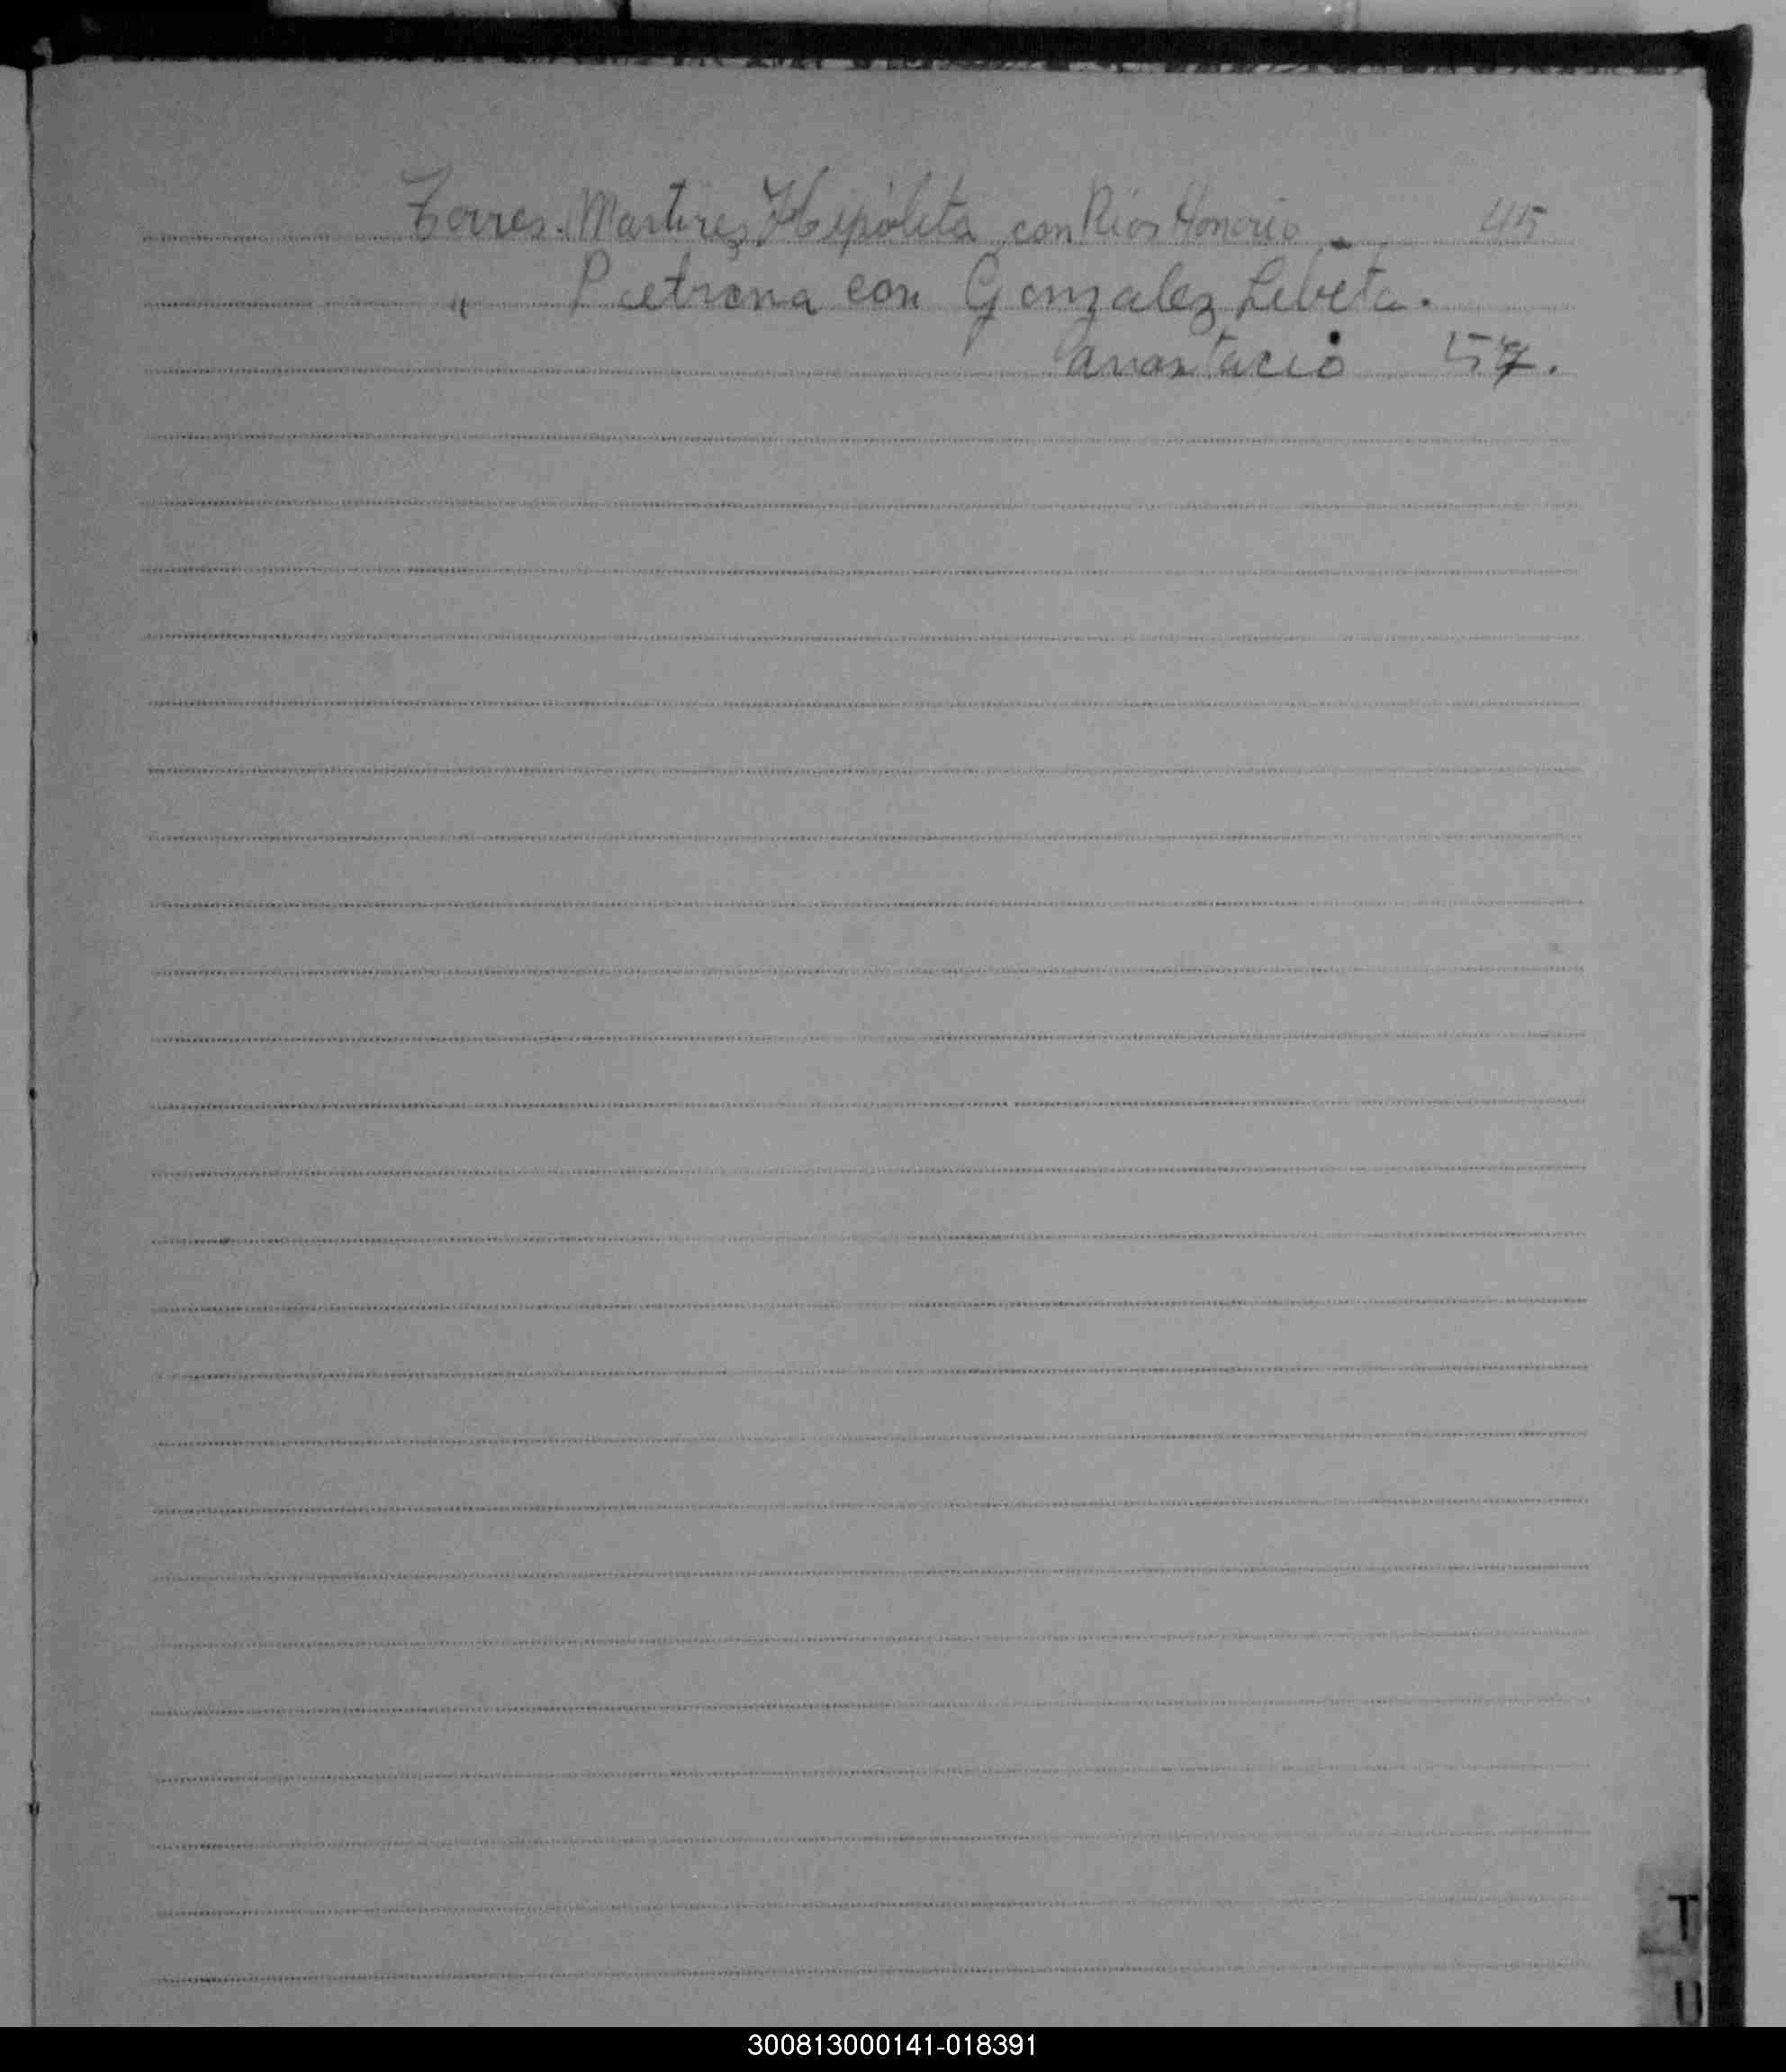 Torres. Martires Hipólita con Ríos Honorio. 45
" Petrona con Gonzalez Libeta.
Anastacio 57.
T
U
300813000141-018391